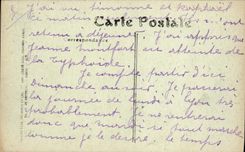 J'ai vu Simonne et Raphaël
ce matin
Carte Postale
Correspondance
retenu à déjeuner. J'ai appris que
Jeanne Montfort est atteinte de
la Typhoïde.
Je compte partir d'ici
Dimanche au soir. Je passerai
la journée de lundi à Lyon très
probablement. Je ne rentrerai
donc que mardi ici tout marche
comme je le désire, le temps